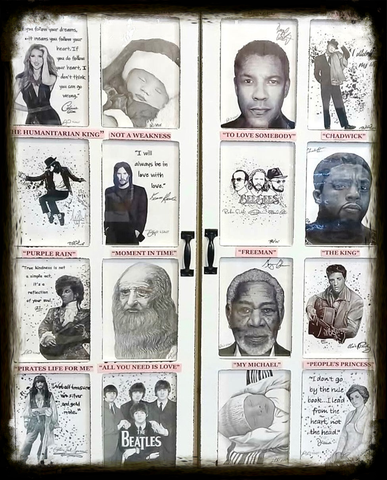 you follow your dreams,
will means you follow
your heart. If
you do follow
your heart, I
don't think
you can go
wrong."
HE HUMANITARIAN KING"
NOT A WEAKNESS
"TO LOVE SOMEBODY"
"CHADWICK"
"I will
always be
in love
with
love."
BEE GEES
"PURPLE RAIN"
"MOMENT IN TIME"
"FREEMAN"
"THE KING"
"True kindness is not
a simple act,
it's a
reflection
of your soul."
"PIRATES LIFE FOR ME"
"ALL YOU NEED IS LOVE"
"MY MICHAEL"
"PEOPLE'S PRINCESS"
"Not all treasure
is silver
and gold
mate."
THE
BEATLES
"I don't go
by the rule
book...I lead
from the
heart, not
the head."
Diana